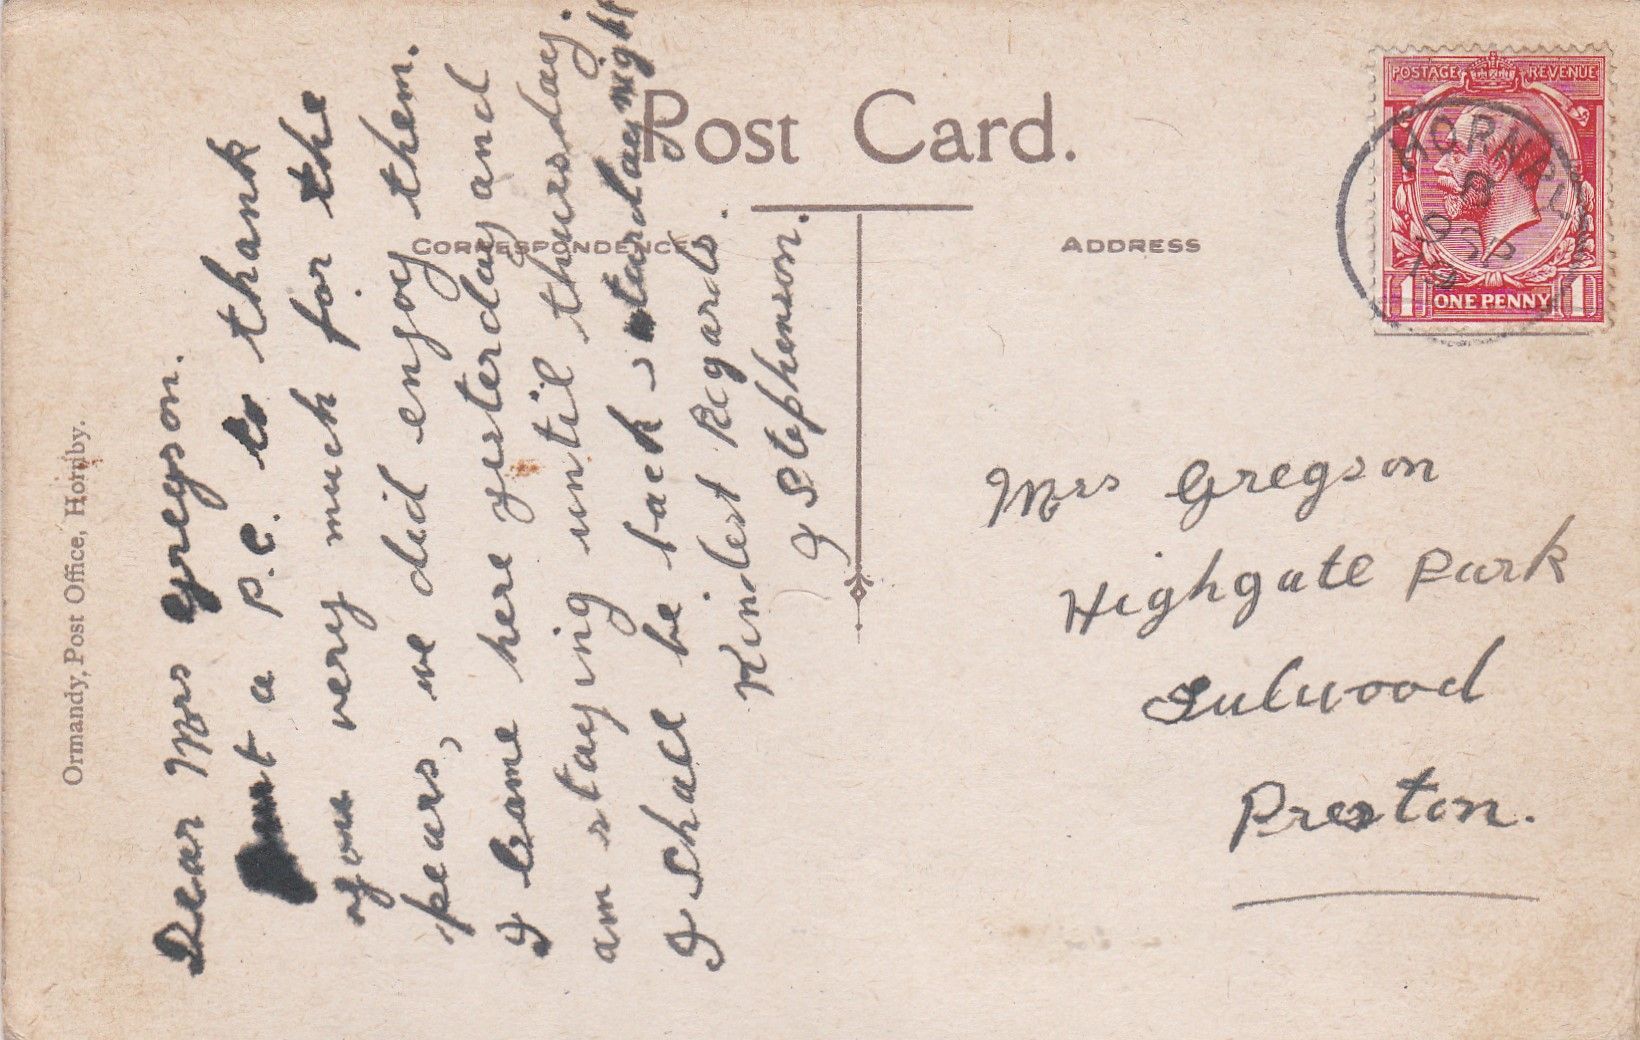 Post Card.
CORRESPONDENCE
ADDRESS
Ormandy, Post Office, Hornby.
Dear Mrs Gregson.
Just a P.C. to thank
you very much for the
pears, we did enjoy them.
I came here yesterday and
am staying until thursday.
I shall be back sturday night
Kindest Regards.
J Stephenson.
Mrs Gregson
Highgate Park
Fulwood
Preston.
POSTAGE REVENUE
1 ONE PENNY 1
8
SP
19